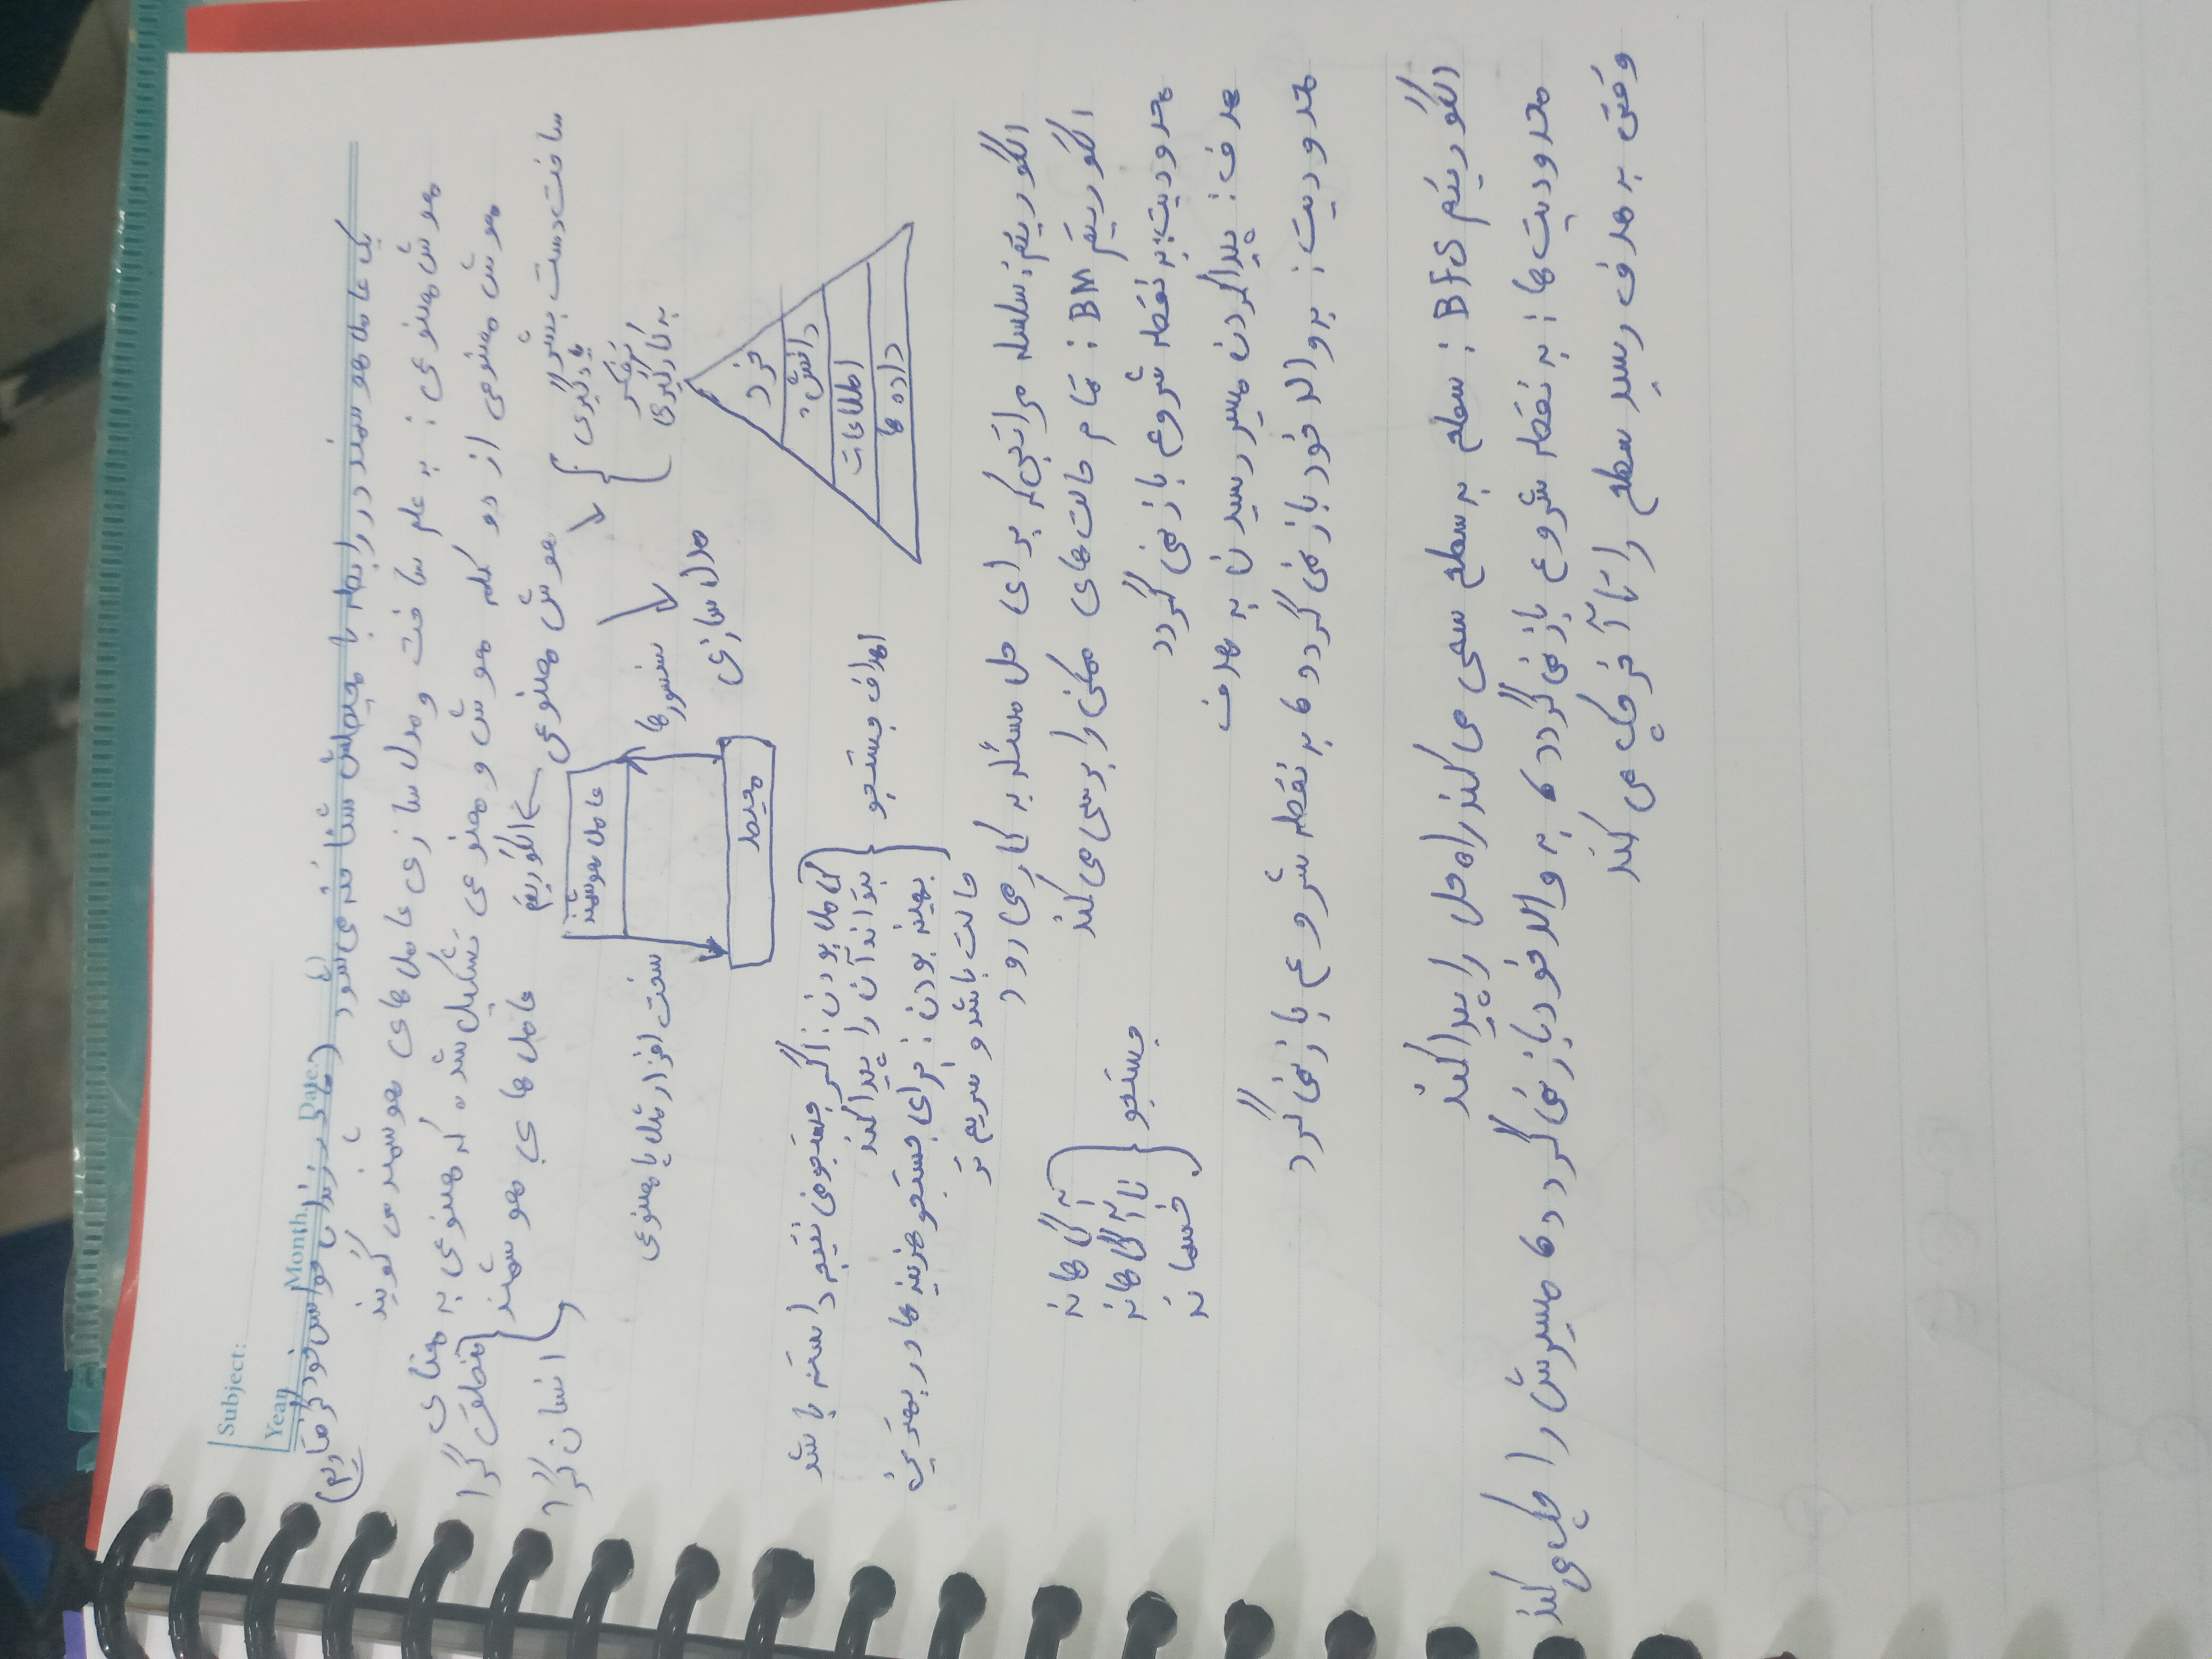 Subject:
Year. Month. Date. ( )
یک عامل هوشمند در رابطه با محیطش شناخته می شود (ما در زندان حواس خود گرفتاریم)
هوش مصنوعی : به علم ساخت و مدل سازی عامل های هوشمند می گویند
هوش مصنوعی از دو کلمه هوش و مصنوعی تشکیل شده که مصنوعی به معنای
ساخت دست بشر
هوش مصنوعی
الگوریتم
عامل های هوشمند
منطق گرا
انسان گرا
یادگیری
تفکر
به کارگیری
مدل سازی
عامل هوشمند
سنسورها
سخت افزار مثل پا مصنوعی
محیط
خرد
دانش
اطلاعات
داده ها
اهداف جستجو
کامل بودن : اگر جستجو می نتیجه داشته باشد
بتواند آن را پیدا کند
بهینه بودن : برای جستجو هزینه ها در بهترین
حالت باشد و سریع تر
الگوریتم : سلسله مراتبی که برای حل مسئله به کار می رود
الگوریتم BM : تمام حالت های ممکن را برسی می کند
محدودیت : به نقطه شروع باز نمی گردد
جستجو
آگاهانه
ناآگاهانه
خصمانه
هدف : پیدا کردن مسیر رسیدن به هدف
محدودیت : به والد خود باز نمی گردد ، به نقطه شروع باز نمی گرد
الگوریتم BFS : سطح به سطح سعی می کند راه حل را پیدا کند
محدودیت ها : به نقطه شروع باز نمی گردد ، به والد خود باز نمی گردد ، مسیرش را چک می کند
وقتی به هدف رسید سطح را تا آخر چک می کند